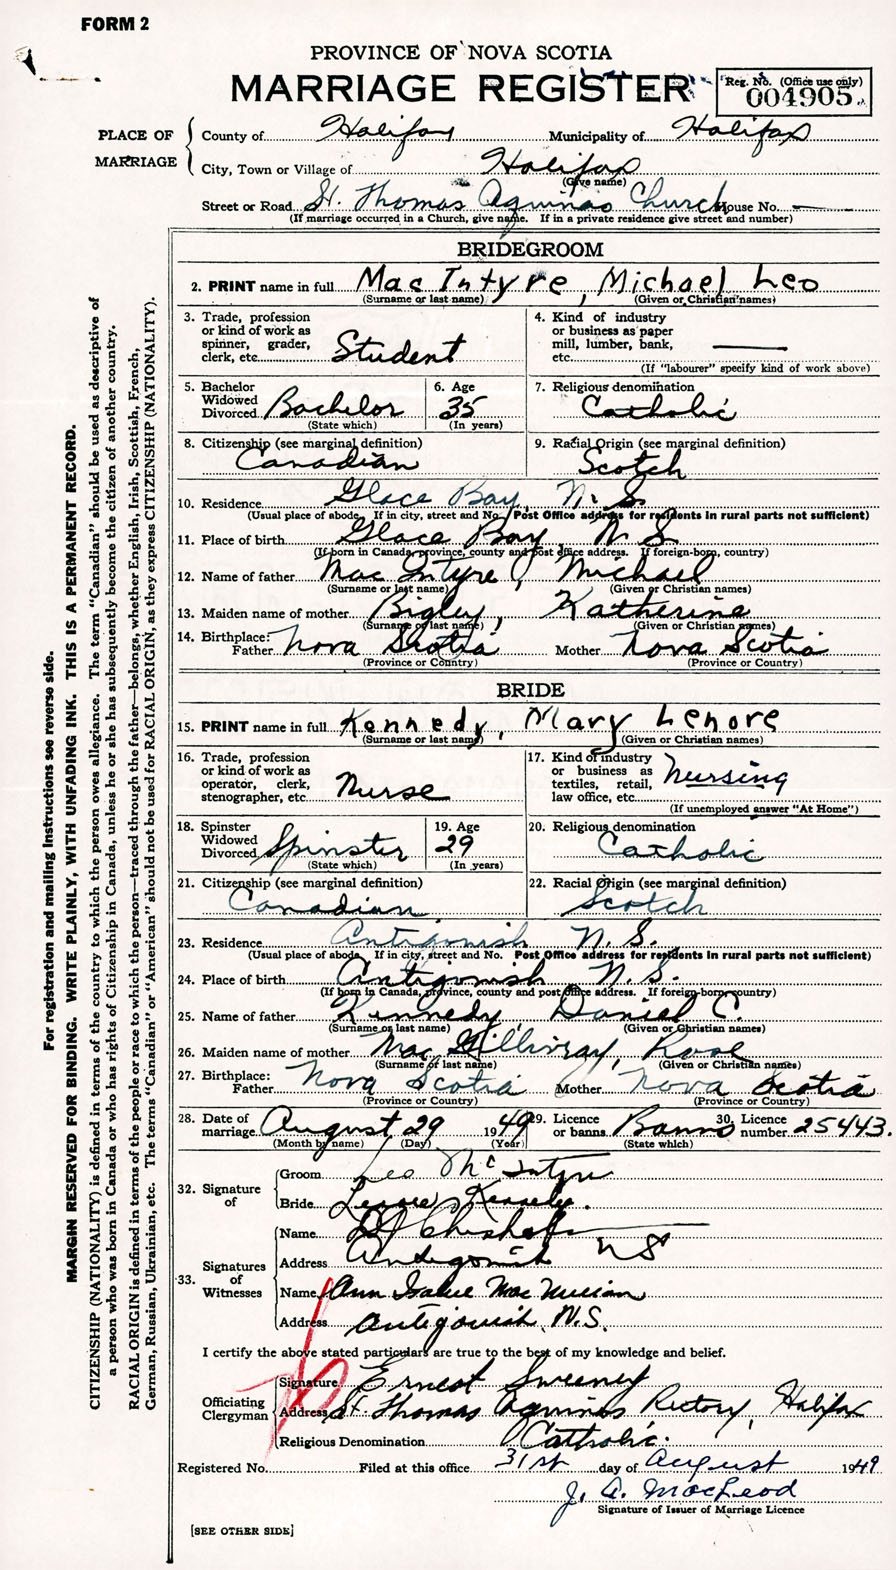 FORM 2
PROVINCE OF NOVA SCOTIA
MARRIAGE REGISTER
Reg. No. (Office use only)
004905
PLACE OF MARRIAGE
County of Halifax Municipality of Halifax
City, Town or Village of Halifax
(Give name)
Street or Road St. Thomas Aquinas Church House No. —
(If marriage occurred in a Church, give name. If in a private residence give street and number)
BRIDEGROOM
2. PRINT name in full MacIntyre, Michael Leo
(Surname or last name) (Given or Christian names)
3. Trade, profession or kind of work as spinner, grader, clerk, etc. Student
4. Kind of industry or business as paper mill, lumber, bank, etc. —
(If "labourer" specify kind of work above)
5. Bachelor Widowed Divorced Bachelor
(State which)
6. Age 35
(In years)
7. Religious denomination
Catholic
8. Citizenship (see marginal definition)
Canadian
9. Racial Origin (see marginal definition)
Scotch
10. Residence Glace Bay, N.S.
(Usual place of abode. If in city, street and No. Post Office address for residents in rural parts not sufficient)
11. Place of birth Glace Bay N.S.
(If born in Canada, province, county and post office address. If foreign-born, country)
12. Name of father MacIntyre, Michael
(Surname or last name) (Given or Christian names)
13. Maiden name of mother Bigley, Katherine
(Surname or last name) (Given or Christian names)
14. Birthplace: Father Nova Scotia Mother Nova Scotia
(Province or Country) (Province or Country)
BRIDE
15. PRINT name in full Kennedy, Mary Lenore
(Surname or last name) (Given or Christian names)
16. Trade, profession or kind of work as operator, clerk, stenographer, etc. Nurse
17. Kind of industry or business as textiles, retail, law office, etc. Nursing
(If unemployed answer "At Home")
18. Spinster Widowed Divorced Spinster
(State which)
19. Age 29
(In years)
20. Religious denomination
Catholic
21. Citizenship (see marginal definition)
Canadian
22. Racial Origin (see marginal definition)
Scotch
23. Residence Antigonish N.S.
(Usual place of abode. If in city, street and No. Post Office address for residents in rural parts not sufficient)
24. Place of birth Antigonish N.S.
(If born in Canada, province, county and post office address. If foreign-born country)
25. Name of father Kennedy, Daniel C.
(Surname or last name) (Given or Christian names)
26. Maiden name of mother MacGillivray, Rose
(Surname or last name) (Given or Christian names)
27. Birthplace: Father Nova Scotia Mother Nova Scotia
(Province or Country) (Province or Country)
28. Date of marriage August 29 1949
(Month by name) (Day) (Year)
29. Licence or banns Banns
(State which)
30. Licence number 25443.
32. Signature of
Groom Leo McIntyre
Bride Lenore Kennedy
33. Signatures of Witnesses
Name Chisholm
Address Antigonish NS
Name Ann Isabel MacMillan
Address Antigonish, N.S.
I certify the above stated particulars are true to the best of my knowledge and belief.
Officiating Clergyman
Signature Ernest Sweeney
Address St. Thomas Aquinas Rectory, Halifax
Religious Denomination Catholic.
Registered No. Filed at this office 31st day of August 1949
J. A. MacLeod
Signature of Issuer of Marriage Licence
[SEE OTHER SIDE]
For registration and mailing instructions see reverse side.
MARGIN RESERVED FOR BINDING. WRITE PLAINLY, WITH UNFADING INK. THIS IS A PERMANENT RECORD.
CITIZENSHIP (NATIONALITY) is defined in terms of the country to which the person owes allegiance. The term "Canadian" should be used as descriptive of
a person who was born in Canada or who has rights of Citizenship in Canada, unless he or she has subsequently become the citizen of another country.
RACIAL ORIGIN is defined in terms of the people or race to which the person—traced through the father—belongs, whether English, Irish, Scottish, French,
German, Russian, Ukrainian, etc. The terms "Canadian" or "American" should not be used for RACIAL ORIGIN, as they express CITIZENSHIP (NATIONALITY).